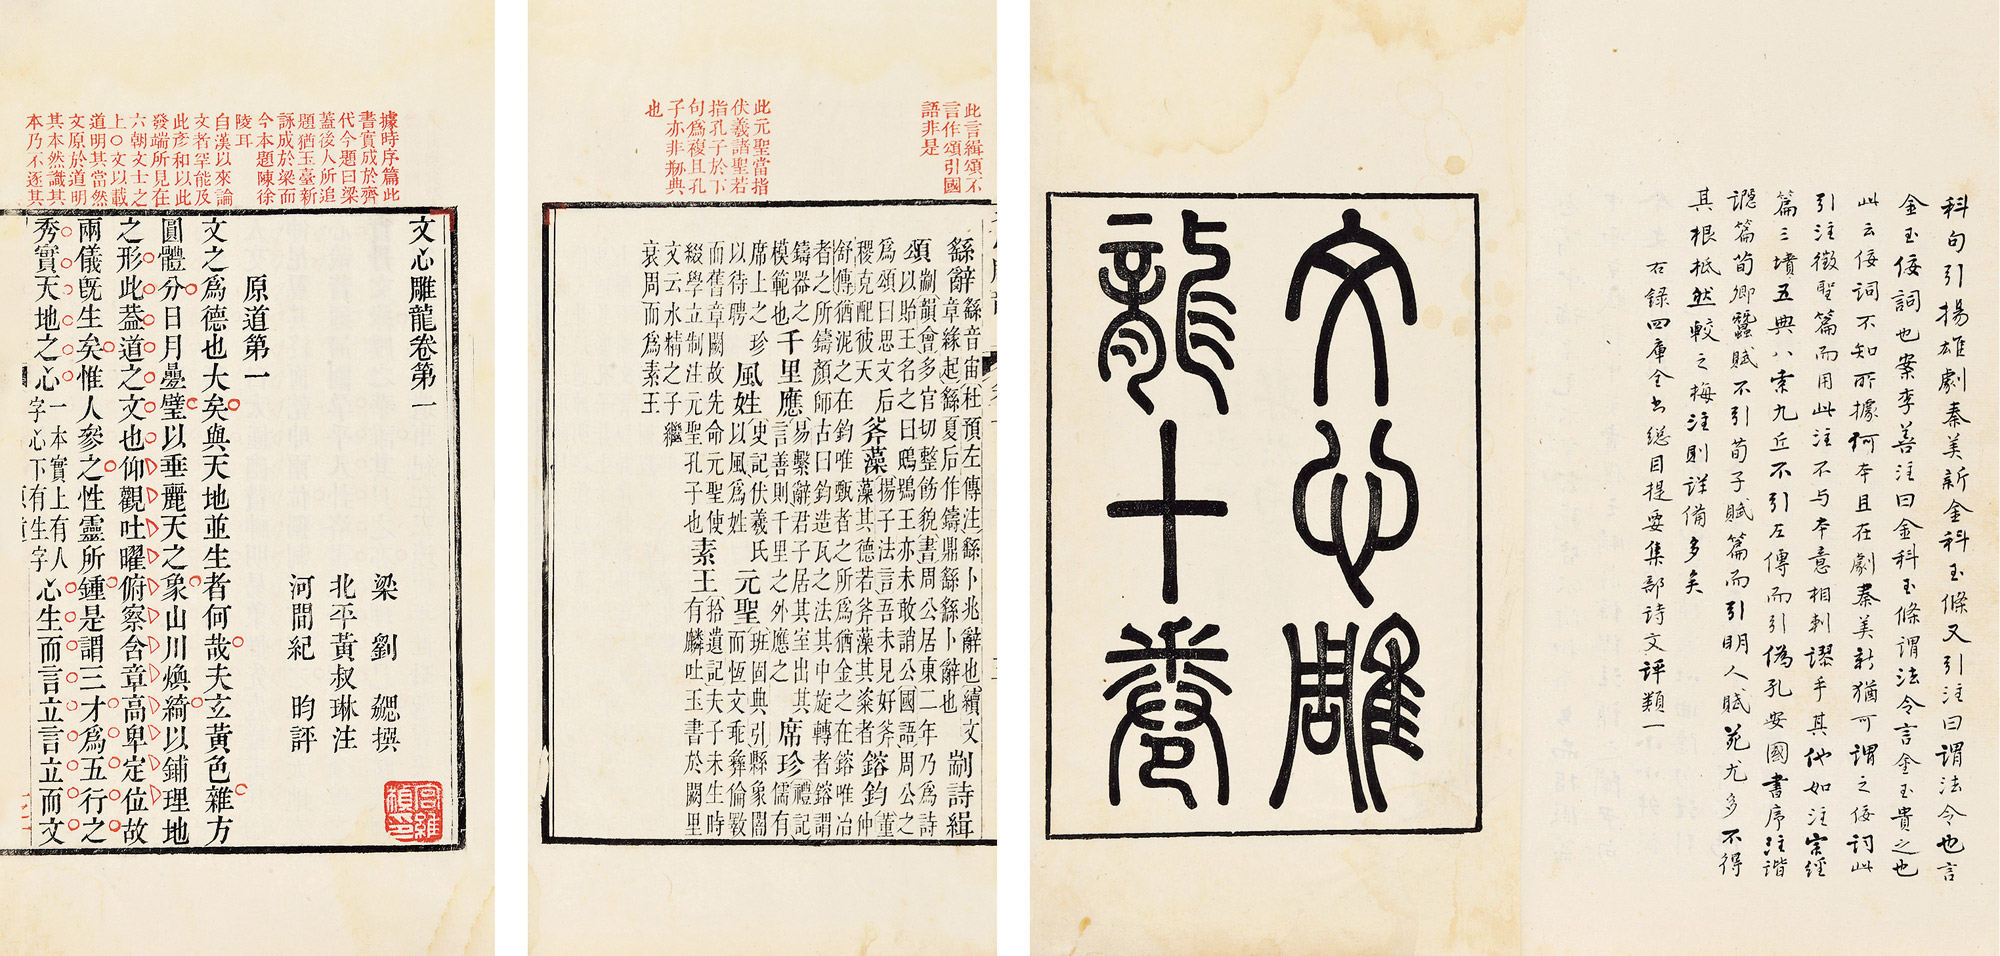 科句引揚雄劇秦美新金科玉條又引注曰謂法令也言
金玉佞詞也案李善注曰金科玉條謂法令言金玉貴之也
此云佞詞不知所據何本且在劇秦美新猶可謂之佞詞此
引注徵聖篇而用此注不与本意相刺謬乎其他如注宗經
篇三墳五典八索九丘不引左傳而引偽孔安國書序注諧
讔篇荀卿蠶賦不引荀子賦篇而引明人賦苑尤多不得
其根柢然較之梅注則詳備多矣
右錄四庫全书總目提要集部詩文評類一
文心雕
龍十卷
此言緝頌不
言作頌引國
語非是
此元聖當指
伏羲諸聖若
指孔子於下
句為複且孔
子亦非剏典
也
繇辭繇音宙杜預左傳注繇卜兆辭也續文章緣起繇夏后作鑄鼎繇繇卜辭也剬詩緝
頌剬韻會多官切整飭貌書周公居東二年乃為詩以貽王名之曰鴟鴞王亦未敢誚公國語周公之
為頌曰思文后稷克配彼天斧藻揚子法言吾未見好斧藻其德若斧藻其楶者鎔鈞董仲
舒傳猶泥之在鈞唯甄者之所為猶金之在鎔唯冶者之所鑄顏師古曰鈞造瓦之法其中旋轉者鎔謂
鑄器之模範也千里應易繫辭君子居其室出其言善則千里之外應之席珍禮記儒有
席上之珍以待聘風姓史記伏羲氏以風為姓元聖班固典引縣象闇而恆文乖彝倫斁
而舊章闕故先命元聖使綴學立制注元聖孔子也素王拾遺記夫子未生時有麟吐玉書於闕里
文云水精之子繼衰周而為素王
據時序篇此
書實成於齊
代今題曰梁
蓋後人所追
題猶玉臺新
詠成於梁而
今本題陳徐
陵耳
自漢以來論
文者罕能及
此彥和以此
發端所見在
六朝文士之
上○文以載
道明其當然
文原於道明
其本然識其
本乃不逐其
文心雕龍卷第一
梁 劉 勰撰
北平黃叔琳注
河間紀 昀評
原道第一
文之為德也大矣與天地並生者何哉夫玄黃色雜方
圓體分日月疊璧以垂麗天之象山川煥綺以鋪理地
之形此葢道之文也仰觀吐曜俯察含章高卑定位故
兩儀既生矣惟人參之性靈所鍾是謂三才為五行之
秀實天地之心一本實上有人字心下有生字心生而言立言立而文